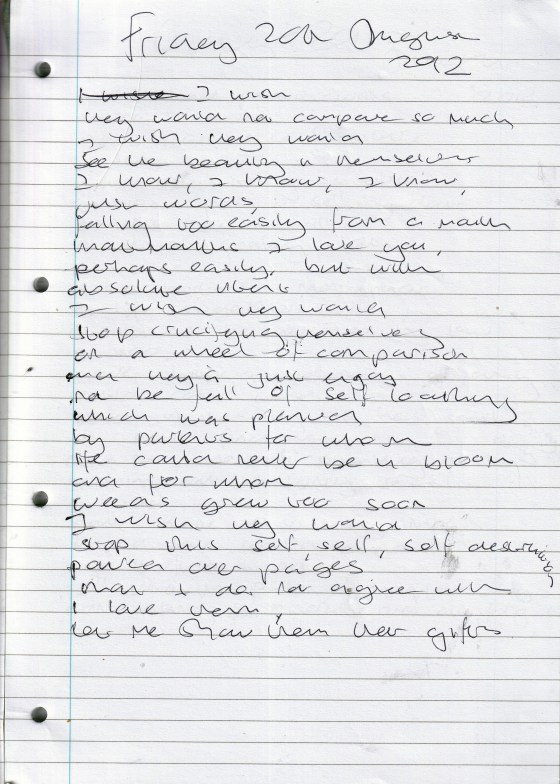 Friday 20th August
2012
I wish
they would not compare so much
I wish they would
See the beauty in themselves
I know, I know, I know,
just words,
falling too easily from a mouth
that makes I love you,
perhaps easily, but with
absolute
I wish they would
stop crucifying themselves
on a wheel of comparison
and they'd just enjoy
not be full of self loathing
which was planted
by parents for whom
life could never be in bloom
and for whom
weeds grew too soon
I wish they would
stop this self, self, self destructing
over pages
that I do not agree with
I love them,
let me show them their gifts